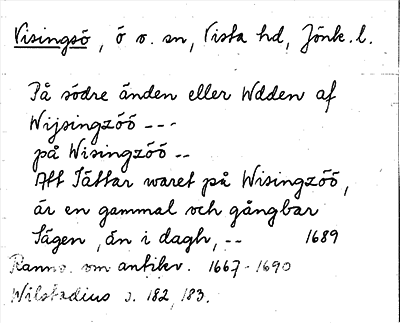 Visingsö, ö o. sn, Vista hd, Jönk. l.
På södre änden eller Udden af
Wijsingzöö ---
på Wisingzöö --
Att Jättar waret på Wisingzöö,
är en gammal och gångbar
Sägen, än i dagh, -- 1689
Ranns. om antikv. 1667-1690
Wilstadius s. 182, 183.